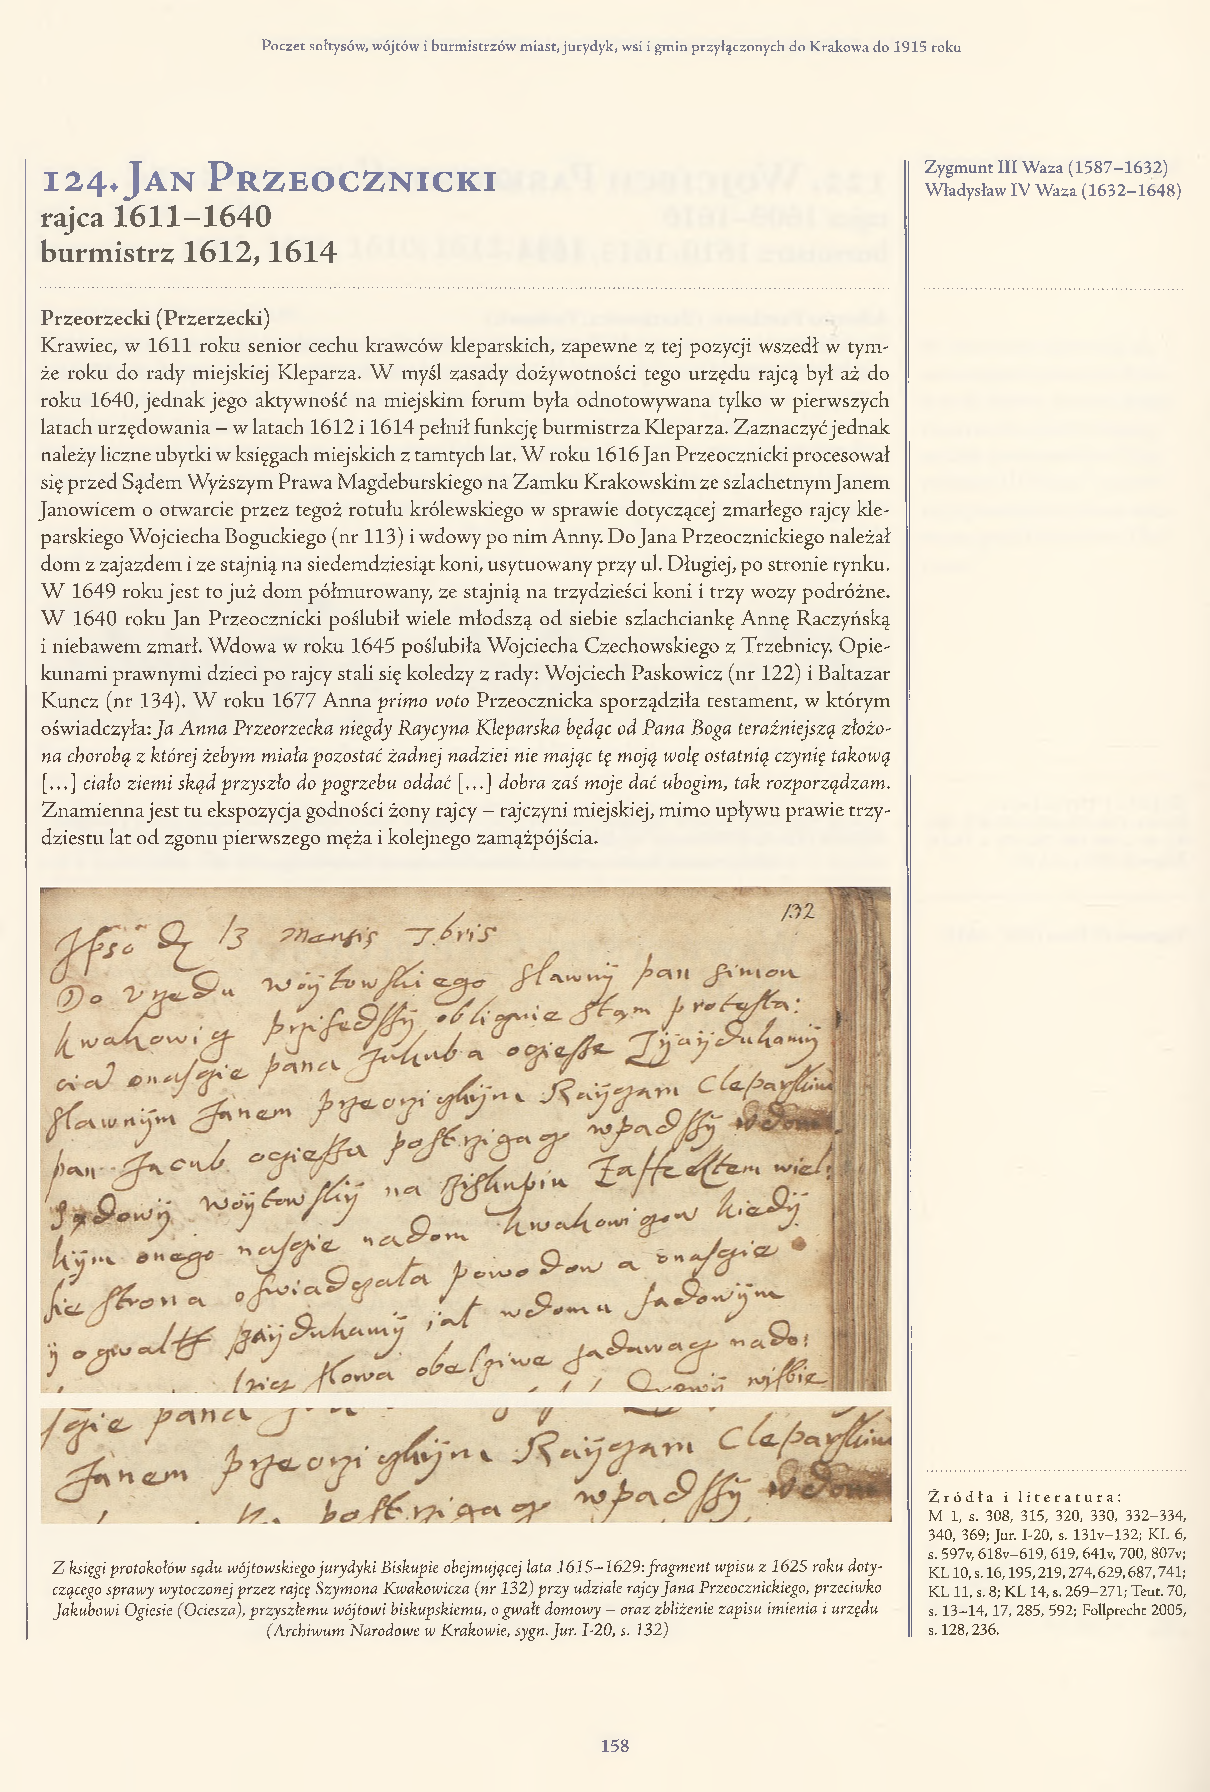 Poczet sołtysów, wójtów i burmistrzów miast, jurydyk, wsi i gmin przyłączonych do Krakowa do 1915 roku
124. Jan Przeocznicki
rajca 1611–1640
burmistrz 1612, 1614
Zygmunt III Waza (1587–1632)
Władysław IV Waza (1632–1648)
Przeorzecki (Przerzecki)
Krawiec, w 1611 roku senior cechu krawców kleparskich, zapewne z tej pozycji wszedł w tym-
że roku do rady miejskiej Kleparza. W myśl zasady dożywotności tego urzędu rajcą był aż do
roku 1640, jednak jego aktywność na miejskim forum była odnotowywana tylko w pierwszych
latach urzędowania – w latach 1612 i 1614 pełnił funkcję burmistrza Kleparza. Zaznaczyć jednak
należy liczne ubytki w księgach miejskich z tamtych lat. W roku 1616 Jan Przeocznicki procesował
się przed Sądem Wyższym Prawa Magdeburskiego na Zamku Krakowskim ze szlachetnym Janem
Janowicem o otwarcie przez tegoż rotułu królewskiego w sprawie dotyczącej zmarłego rajcy kle-
parskiego Wojciecha Boguckiego (nr 113) i wdowy po nim Anny. Do Jana Przeocznickiego należał
dom z zajazdem i ze stajnią na siedemdziesiąt koni, usytuowany przy ul. Długiej, po stronie rynku.
W 1649 roku jest to już dom półmurowany, ze stajnią na trzydzieści koni i trzy wozy podróżne.
W 1640 roku Jan Przeocznicki poślubił wiele młodszą od siebie szlachciankę Annę Raczyńską
i niebawem zmarł. Wdowa w roku 1645 poślubiła Wojciecha Czechowskiego z Trzebnicy. Opie-
kunami prawnymi dzieci po rajcy stali się koledzy z rady: Wojciech Paskowicz (nr 122) i Baltazar
Kuncz (nr 134). W roku 1677 Anna primo voto Przeocznicka sporządziła testament, w którym
oświadczyła: Ja Anna Przeorzecka niegdy Raycyna Kleparska będąc od Pana Boga teraźniejszą złożo-
na chorobą z której żebym miała pozostać żadnej nadziei nie mając tę moją wolę ostatnią czynię takową
[...] ciało ziemi skąd przyszło do pogrzebu oddać [...] dobra zaś moje dać ubogim, tak rozporządzam.
Znamienna jest tu ekspozycja godności żony rajcy – rajczyni miejskiej, mimo upływu prawie trzy-
dziestu lat od zgonu pierwszego męża i kolejnego zamążpójścia.
132
13 mensis 7bris
Do Vrzedu woytowskiego slawny pan simon
pana Jakuba
slawnym Janem Raÿczam Cleparskim
pan Jacub wpadssÿ w dom
woÿtowskiÿ na
onego nadom kiedÿ
strona a
wdomu sadowÿm
slowa
pana
Janem Raÿczam Cleparskim
wpadssÿ w dom
Z księgi protokołów sądu wójtowskiego jurydyki Biskupie obejmującej lata 1615–1629: fragment wpisu z 1625 roku doty-
czącego sprawy wytoczonej przez rajcę Szymona Kwakowicza (nr 132) przy udziale rajcy Jana Przeocznickiego, przeciwko
Jakubowi Ogiesie (Ociesza), przyszłemu wójtowi biskupskiemu, o gwałt domowy – oraz zbliżenie zapisu imienia i urzędu
(Archiwum Narodowe w Krakowie, sygn. Jur. I-20, s. 132)
Źródła i literatura:
M 1, s. 308, 315, 320, 330, 332–334,
340, 369; Jur. I-20, s. 131v–132; KL 6,
s. 597v, 618v–619, 619, 641v, 700, 807v;
KL 10, s. 16, 195, 219, 274, 629, 687, 741;
KL 11, s. 8; KL 14, s. 269–271; Teut. 70,
s. 13–14, 17, 285, 592; Follprecht 2005,
s. 128, 236.
158